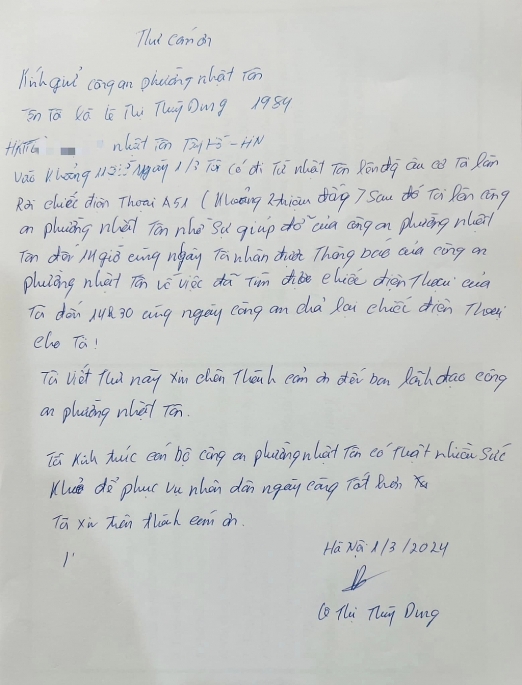 Thư cảm ơn
Kính gửi công an phường nhật Tân
Tên Tôi là lê Thị Thuỳ Dung 1984
HKTT nhật Tân Tây Hồ - HN
Vào Khoảng ngày 1/3 Tôi có đi Từ nhật Tân lên Tôi làm
Rơi chiếc điện Thoại A51 ( Khoảng ) Sau đó Tôi lên công
an phường nhật Tân nhờ Sự giúp đỡ của công an phường nhật
Tân đến 14 giờ cùng ngày Tôi nhận được Thông báo của công an
phường nhật Tân về việc đã Tìm được chiếc điện Thoại của
Tôi đến 14h30 cùng ngày công an chả lại chiếc điện Thoại
cho Tôi !
Tôi viết Thư này xin chân Thành cảm ơn đến ban lãnh đạo công
an phường nhật Tân.
Tôi Kính trúc cán bộ công an phường nhật Tân có Thật nhiều Sức
Khoẻ để phục vụ nhân dân ngày càng Tốt hơn
Tôi xin trân thành cảm ơn.
Hà Nội 1/3/2024
lê Thị Thuỳ Dung